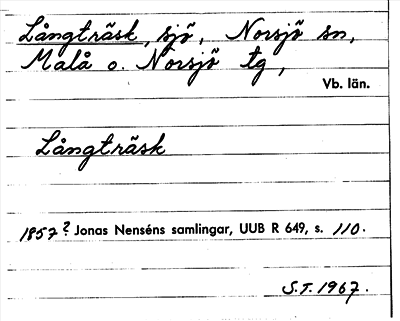 Långträsk, sjö, Norsjö sn,
Malå o. Norsjö tg,
Vb. län.
Långträsk
1857? Jonas Nenséns samlingar, UUB R 649, s. 110.
S.T. 1967.